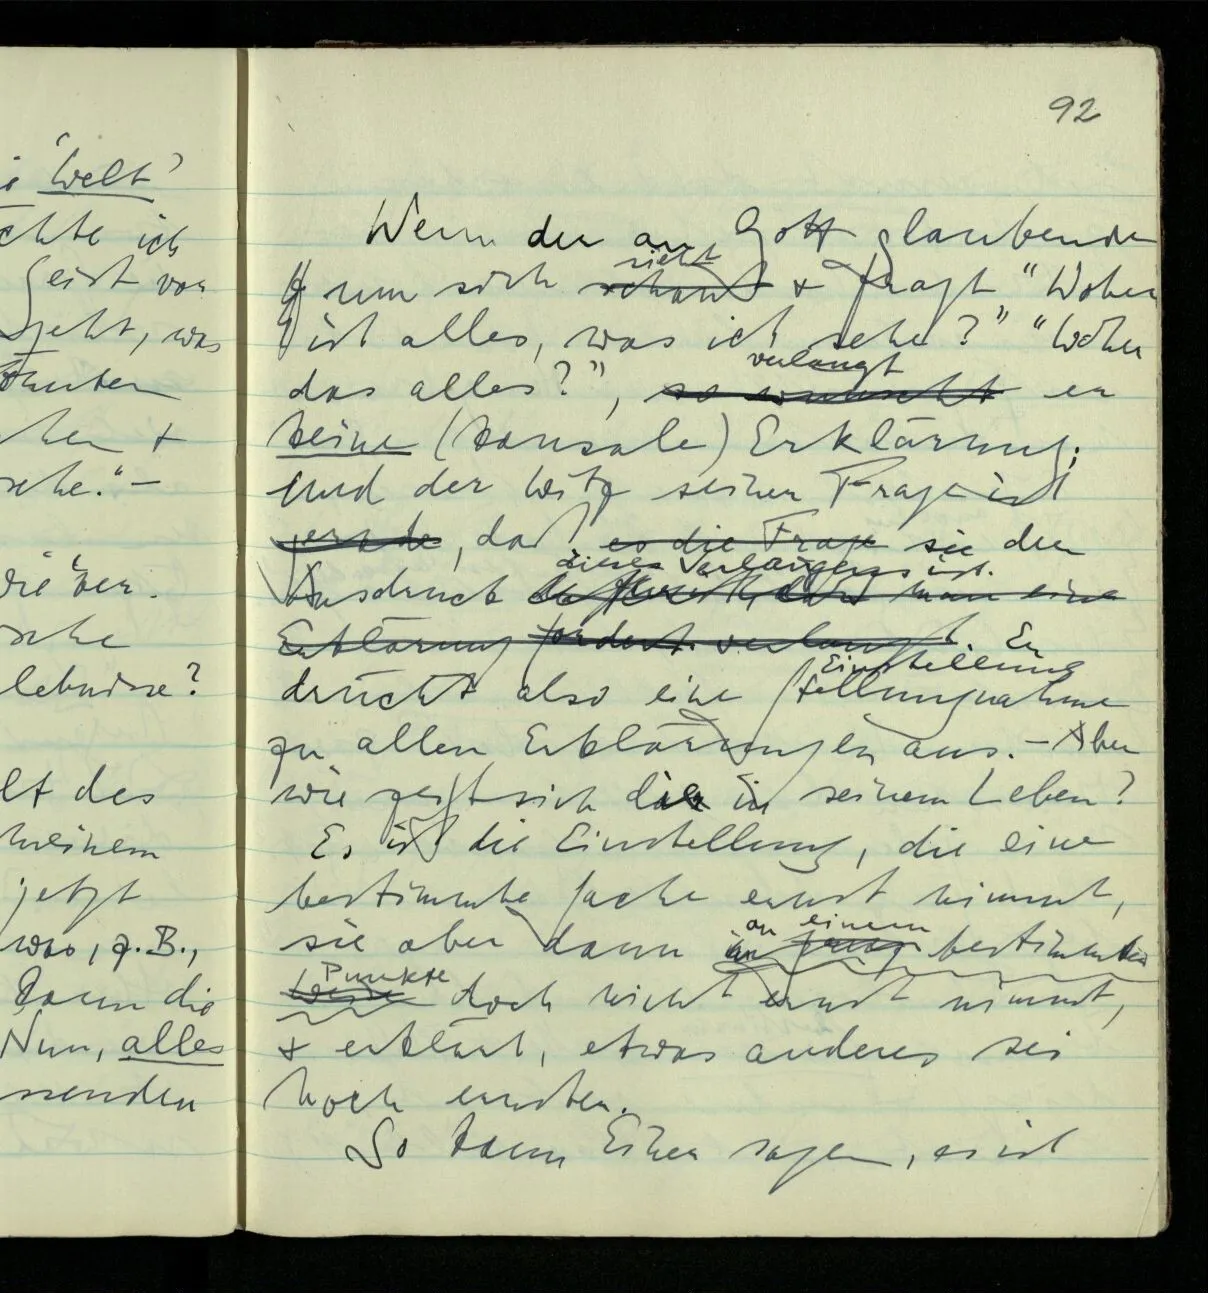 'Welt'
ich
Geist von
geht, was
sehe." –
lebnisse?
des
meinem
jetzt
was, z.B.,
kann die
Nun, alles
92
Wenn der an Gott glaubende
um sich schaut sieht & fragt "Woher
ist alles, was ich sehe?" "Woher
das alles?", so wünscht verlangt er
keine (kausale) Erklärung;
und der Witz seiner Frage ist
gerade, daß es die Frage sie der
Ausdruck dieses Verlangens ist. man eine
Erklärung fordert. verlangt. Er
drückt also eine Stellungnahme Einstellung
zu allen Erklärungen aus. – Aber
wie zeigt sich die in seinem Leben?
Es ist die Einstellung, die eine
bestimmte Sache ernst nimmt,
sie aber dann an einem bestimmten
Weise Punkte doch nicht ernst nimmt,
& erklärt, etwas anderes sei
noch ernster.
So kann Einer sagen, es ist